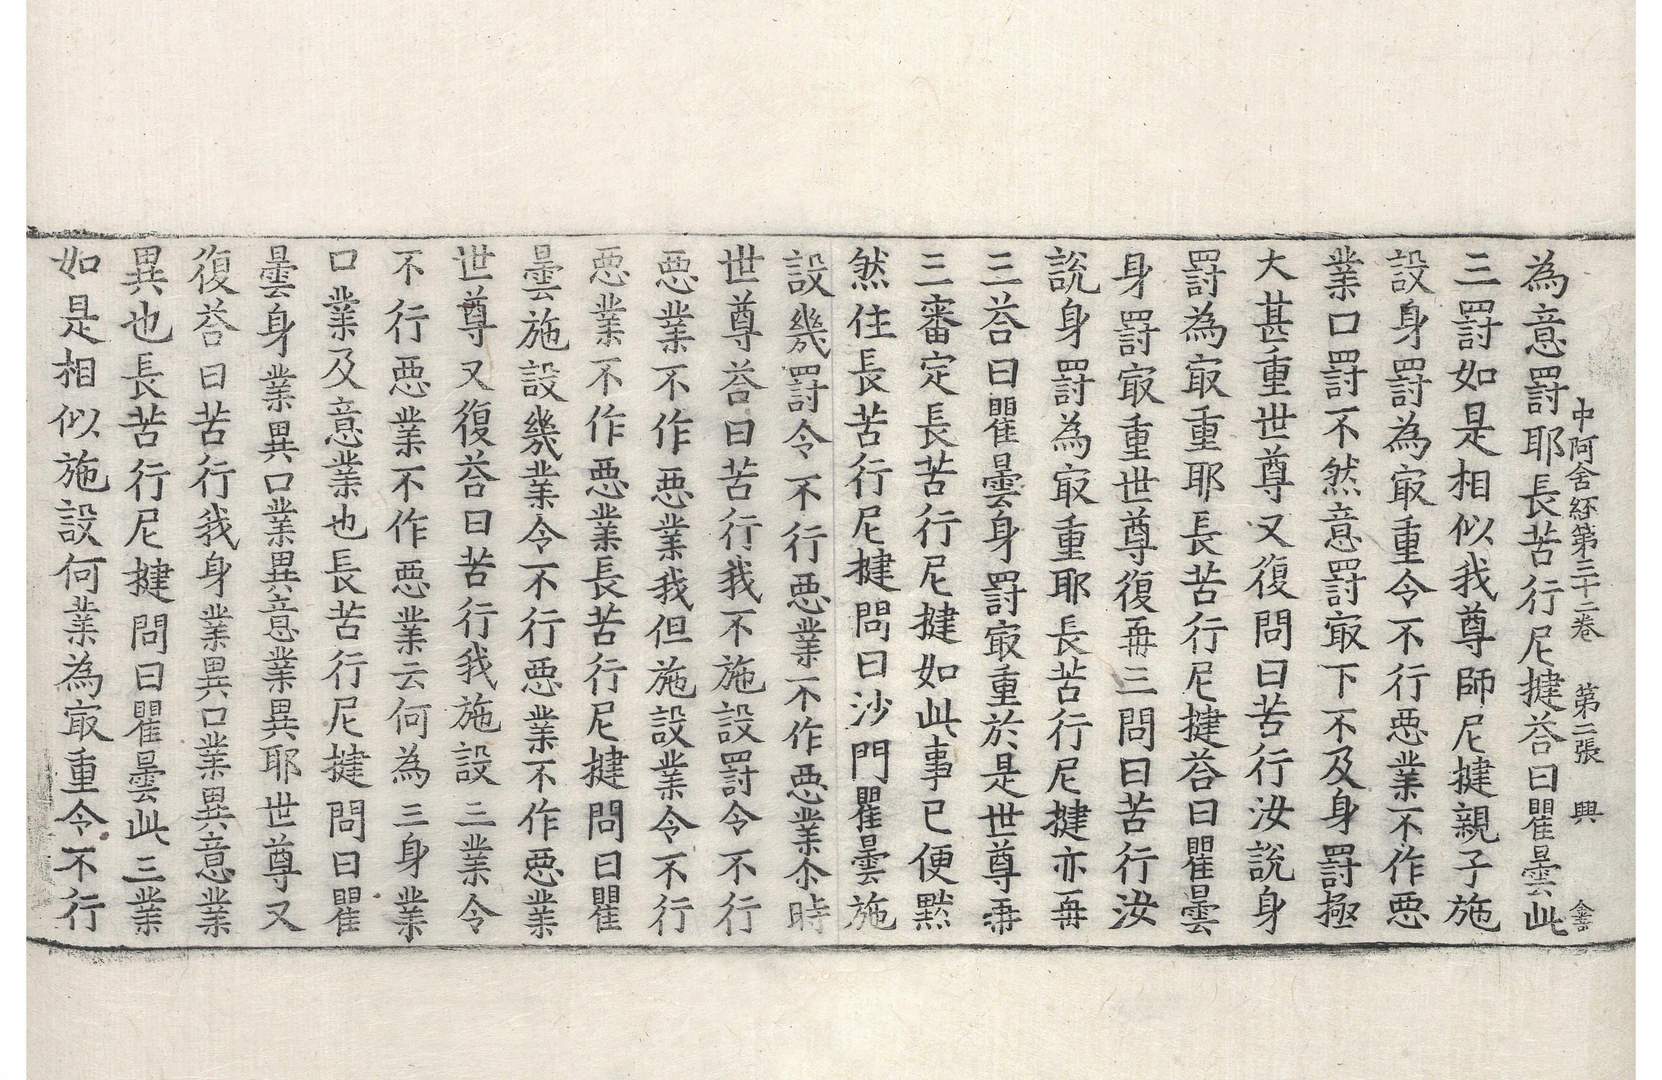 中阿含經第三十二卷　第二張　興
為意罰耶長苦行尼揵荅曰瞿曇此
三罰如是相似我尊師尼揵親子施
設身罰為㝡重令不行惡業不作惡
業口罰不然意罰㝡下不及身罰極
大甚重世尊又復問曰苦行汝說身
罰為㝡重耶長苦行尼揵荅曰瞿曇
身罰㝡重世尊復再三問曰苦行汝
說身罰為㝡重耶長苦行尼揵亦再
三荅曰瞿曇身罰㝡重於是世尊再
三審定長苦行尼揵如此事已便默
然住長苦行尼揵問曰沙門瞿曇施
設幾罰令不行惡業不作惡業尒時
世尊荅曰苦行我不施設罰令不行
惡業不作惡業我但施設業令不行
惡業不作惡業長苦行尼揵問曰瞿
曇施設幾業令不行惡業不作惡業
世尊又復荅曰苦行我施設三業令
不行惡業不作惡業云何為三身業
口業及意業也長苦行尼揵問曰瞿
曇身業異口業異意業異耶世尊又
復荅曰苦行我身業異口業異意業
異也長苦行尼揵問曰瞿曇此三業
如是相似施設何業為㝡重令不行